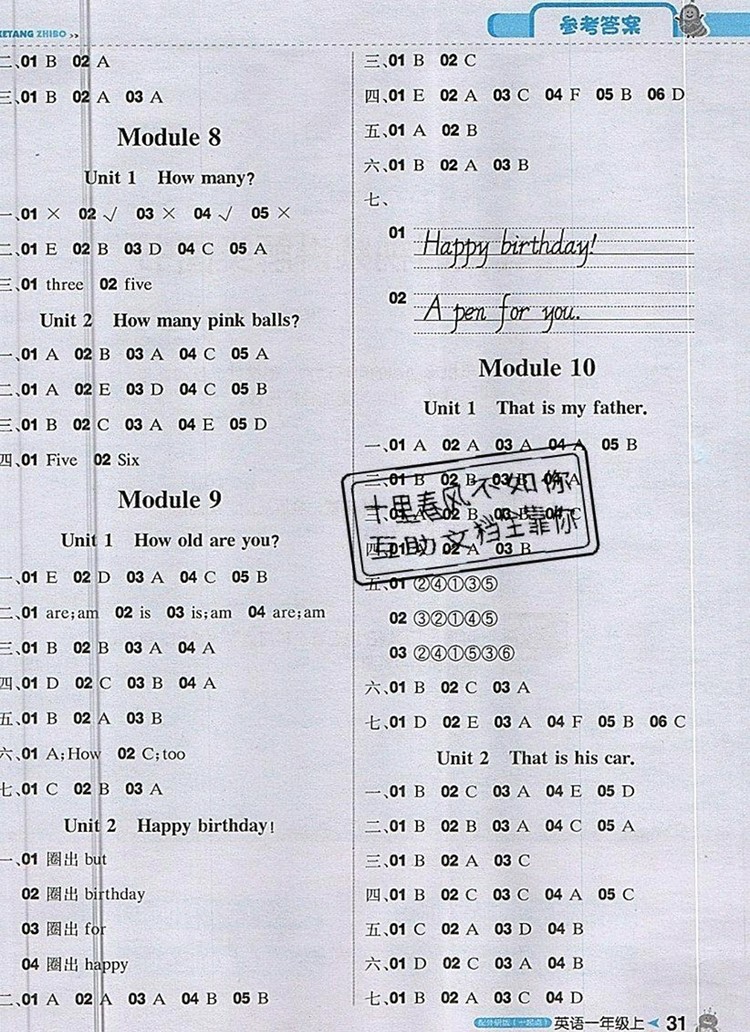 KETANG ZHIBO >>
参考答案
二、01 B 02 A
三、01 B 02 A 03 A
Module 8
Unit 1 How many?
一、01 × 02 √ 03 × 04 √ 05 ×
二、01 E 02 B 03 D 04 C 05 A
三、01 three 02 five
Unit 2 How many pink balls?
一、01 A 02 B 03 A 04 C 05 A
二、01 A 02 E 03 D 04 C 05 B
三、01 B 02 C 03 A 04 E 05 D
四、01 Five 02 Six
Module 9
Unit 1 How old are you?
一、01 E 02 D 03 A 04 C 05 B
二、01 are;am 02 is 03 is;am 04 are;am
三、01 B 02 B 03 A 04 A
四、01 D 02 C 03 B 04 A
五、01 B 02 A 03 B
六、01 A;How 02 C;too
七、01 C 02 B 03 A
Unit 2 Happy birthday!
一、01 圈出 but
02 圈出 birthday
03 圈出 for
04 圈出 happy
二、01 A 02 A 03 A 04 B 05 B
三、01 B 02 C
四、01 E 02 A 03 C 04 F 05 B 06 D
五、01 A 02 B
六、01 B 02 A 03 B
七、
01 Happy birthday!
02 A pen for you.
Module 10
Unit 1 That is my father.
一、01 A 02 A 03 A 04 A 05 B
二、01 B 02 B 03 B 04 A
三、01 A 02 B 03 B 04 C
四、01 02 A 03 B
十里春风不如你
互助文档全靠你
五、01 ②④①③⑤
02 ③②①④⑤
03 ②④①⑤③⑥
六、01 B 02 C 03 A
七、01 D 02 E 03 A 04 F 05 B 06 C
Unit 2 That is his car.
一、01 B 02 C 03 A 04 E 05 D
二、01 B 02 B 03 A 04 C 05 A
三、01 B 02 A 03 C
四、01 B 02 C 03 C 04 A 05 C
五、01 C 02 A 03 D 04 B
六、01 D 02 C 03 A 04 B
七、01 B 02 A 03 C 04 D
配外研版(一起点) 英语一年级上 31